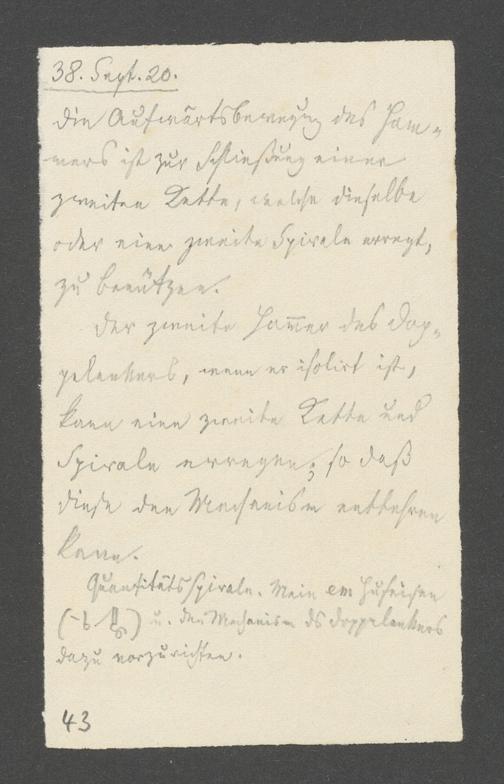 38. Sept. 20.
Die Aufwärtsbewegung des Ham-
mers ist zur Schließung einer
zweiten Kette, welche dieselbe
oder eine zweite Spirale erregt,
zu benützen.
Der zweite Ham̄er des Dop-
pelankers, wenn er isolirt ist,
kann eine zweite Kette und
Spirale erregen; so daß
diese den Mechanism entbehren
kann.
Quantitätsspirale. Mein em Hufeisen
u. den Mechanism ds Doppelankers
dazu vorzurichten.
43